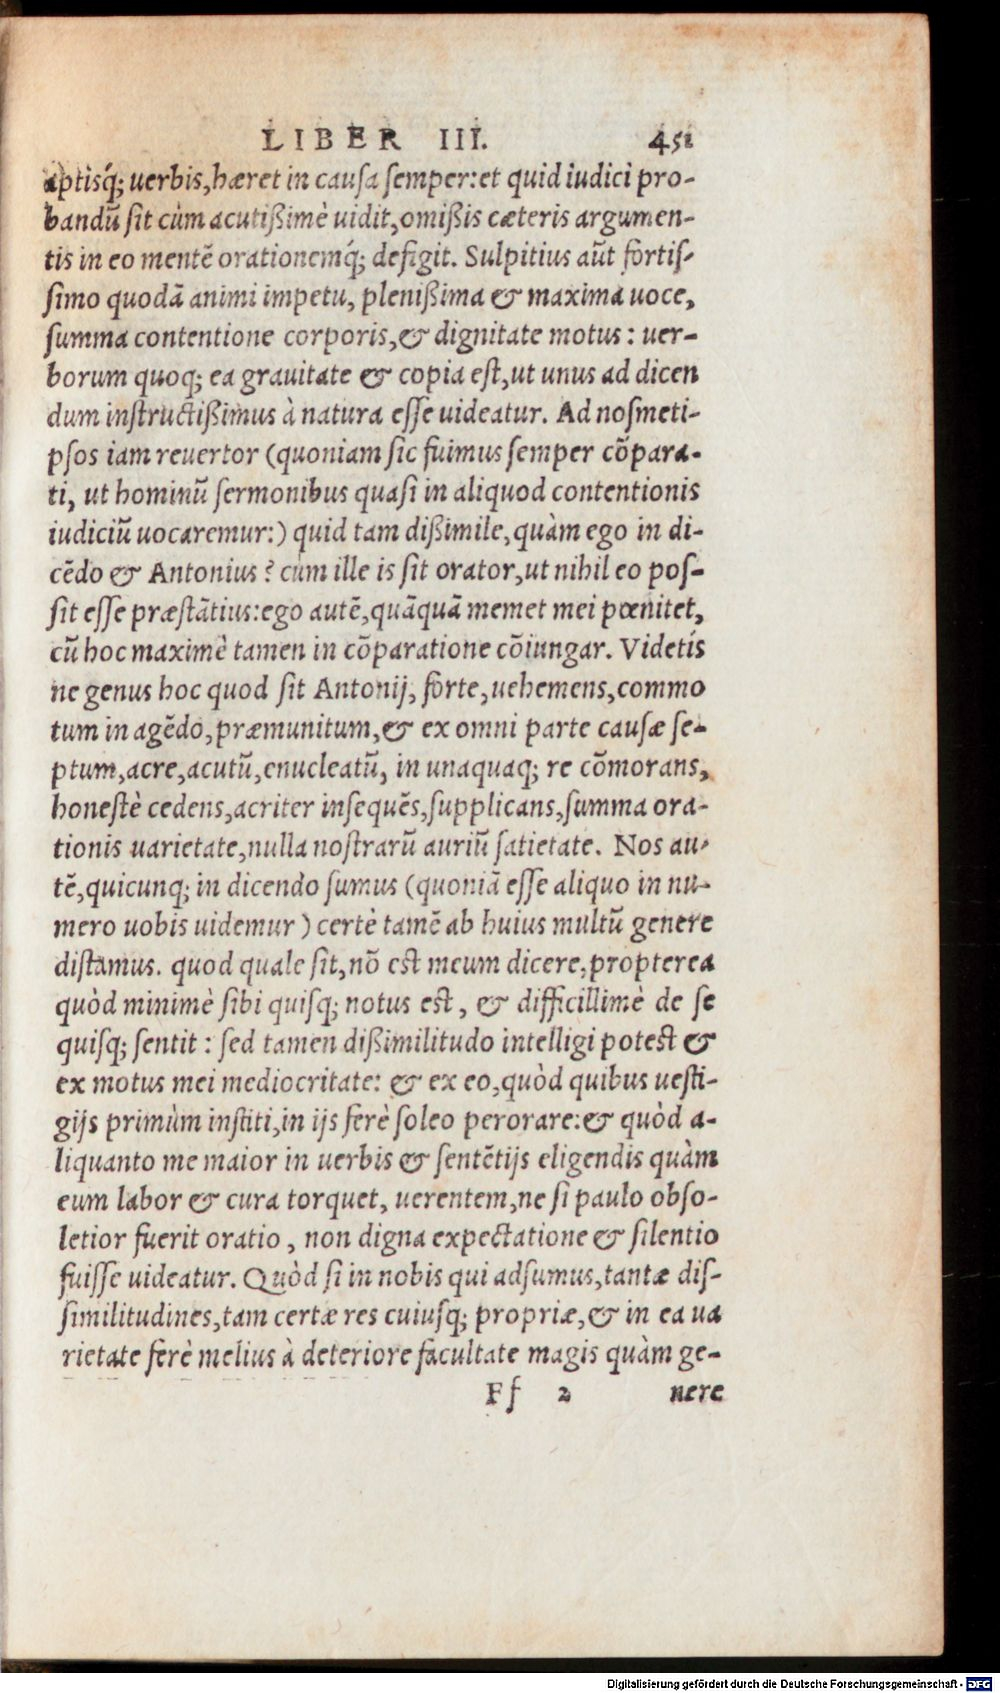 LIBER III. 451
aptisq́; uerbis, hæret in causa semper: et quid iudici pro-
bandū sit cùm acutißimè uidit, omißis cæteris argumen-
tis in eo mentē orationemq́; defigit. Sulpitius aūt fortis-
simo quodā animi impetu, plenißima & maxima uoce,
summa contentione corporis, & dignitate motus: uer-
borum quoq; ea grauitate & copia est, ut unus ad dicen
dum instructißimus à natura esse uideatur. Ad nosmeti-
psos iam reuertor (quoniam sic fuimus semper cōpara-
ti, ut hominū sermonibus quasi in aliquod contentionis
iudiciū uocaremur:) quid tam dißimile, quàm ego in di-
cēdo & Antonius? cùm ille is sit orator, ut nihil eo pos-
sit esse præstātius: ego autē, quāquā memet mei pœnitet,
cū hoc maximè tamen in cōparatione cōiungar. Videtis
ne genus hoc quod sit Antonij, forte, uehemens, commo
tum in agēdo, præmunitum, & ex omni parte causæ se-
ptum, acre, acutū, enucleatū, in unaquaq; re cōmorans,
honestè cedens, acriter insequēs, supplicans, summa ora-
tionis uarietate, nulla nostrarū auriū satietate. Nos au-
tē, quicunq; in dicendo sumus (quoniā esse aliquo in nu-
mero uobis uidemur) certè tamē ab huius multū genere
distamus. quod quale sit, nō est meum dicere, propterea
quòd minimè sibi quisq; notus est, & difficillimè de se
quisq; sentit: sed tamen dißimilitudo intelligi potest &
ex motus mei mediocritate: & ex eo, quòd quibus uesti-
gijs primùm institi, in ijs ferè soleo perorare: & quòd a-
liquanto me maior in uerbis & sentētijs eligendis quàm
eum labor & cura torquet, uerentem, ne si paulo obso-
letior fuerit oratio, non digna expectatione & silentio
fuisse uideatur. Quòd si in nobis qui adsumus, tantæ dis-
similitudines, tam certæ res cuiusq; propriæ, & in ea ua
rietate ferè melius à deteriore facultate magis quàm ge-
Ff 2 nere
Digitalisierung gefördert durch die Deutsche Forschungsgemeinschaft - DFG